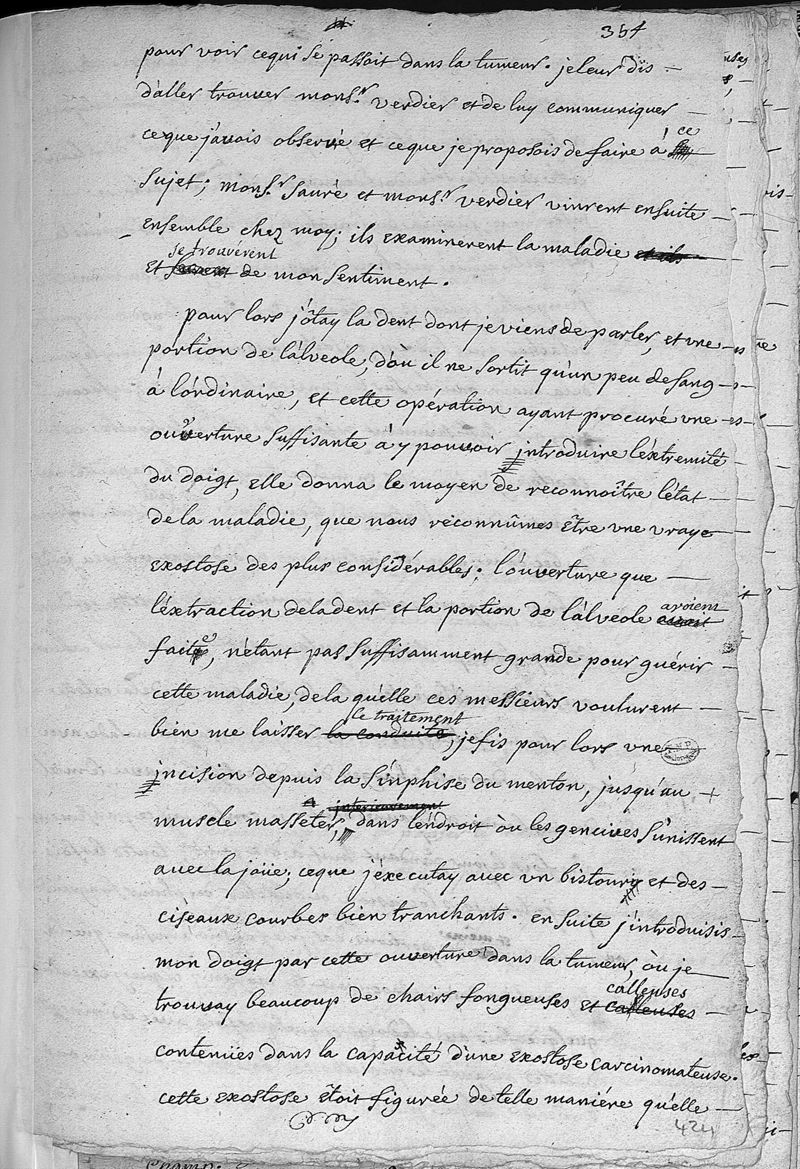 354
pour voir cequi se passoit dans la tumeur. jeleur dis
d'aller trouver mons.r verdier et de luy communiquer
ceque j'avois observé et ceque je proposois de faire à ce
sujet; mons.r sauré et mons.r verdier vinrent ensuite
ensemble chez moy; ils examinerent la maladie et ils
se trouvérent
et furent de mon sentiment.
pour lors j'ôtay la dent dont je viens de parler, et vne
portion de l'alveole, d'où il ne sortit qu'un peu de sang
à l'ordinaire, et cette opération ayant procuré vne
ouverture suffisante à y pouvoir introduire l'éxtremité
du doigt, elle donna le moyen de reconnoître l'état
de la maladie, que nous réconnûmes être vne vraye
exostose des plus considérables; l'ouverture que
l'éxtraction deladent et la portion de l'alveole avoient avait
faite, n'étant pas suffisamment grande pour guérir
cette maladie, de la quelle ces messieurs voulurent
le traitement
bien me laisser la conduite, je fis pour lors vne
incision depuis la sinphise du menton, jusqu'au
interieurement
muscle masseter, dans l'endroit où les gencives s'unissent
avec la joüe; ceque j'éxecutay avec vn bistoury et des
ciseaux courbes bien tranchants. en suite j'introduisis
mon doigt par cette ouverture dans la tumeur, où je
calleuses
trouvay beaucoup de chairs fongueuses et calleuses
contenuës dans la capacité d'une exostose carcinomateuse.
cette exostose étoit figurée de telle maniére qu'elle
424